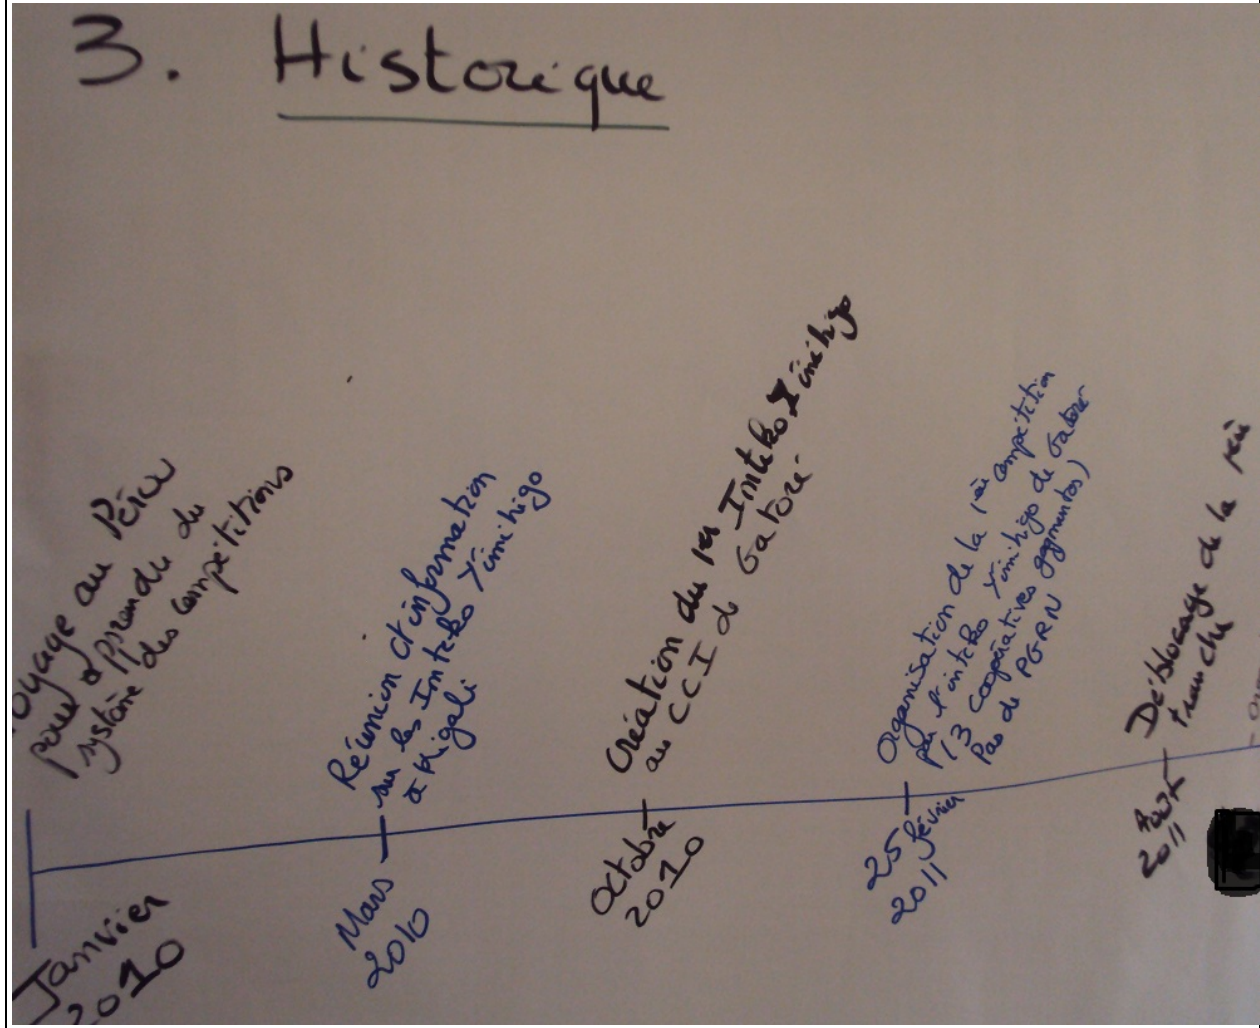 3. Historique
Voyage au Pérou
pour apprendre du
système des compétitions
Janvier
2010
Réunion d'information
sur les Inteko Y'imihigo
à Kigali
Mars
2010
Création du 1er Inteko Y'imihigo
au CCI de Gatore
Octobre
2010
Organisation de la 1ère compétition
par l'inteko Y'imihigo de Gatore
(3 coopératives gagnantes)
Pas de PGRN
25 février
2011
Déblocage de la 1ère
tranche
Août
2011